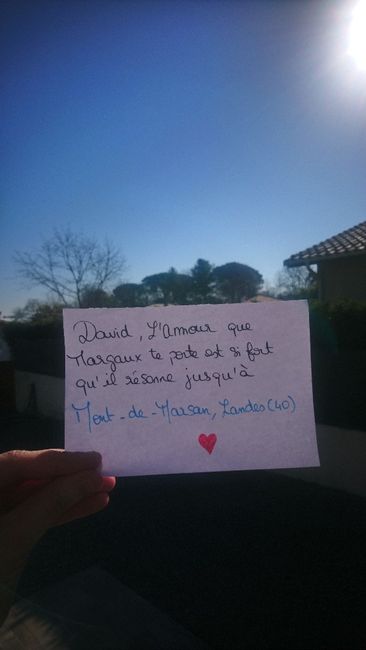 David, L'Amour que
Margaux te porte est si fort
qu'il résonne jusqu'à
Mont-de-Marsan, Landes (40)